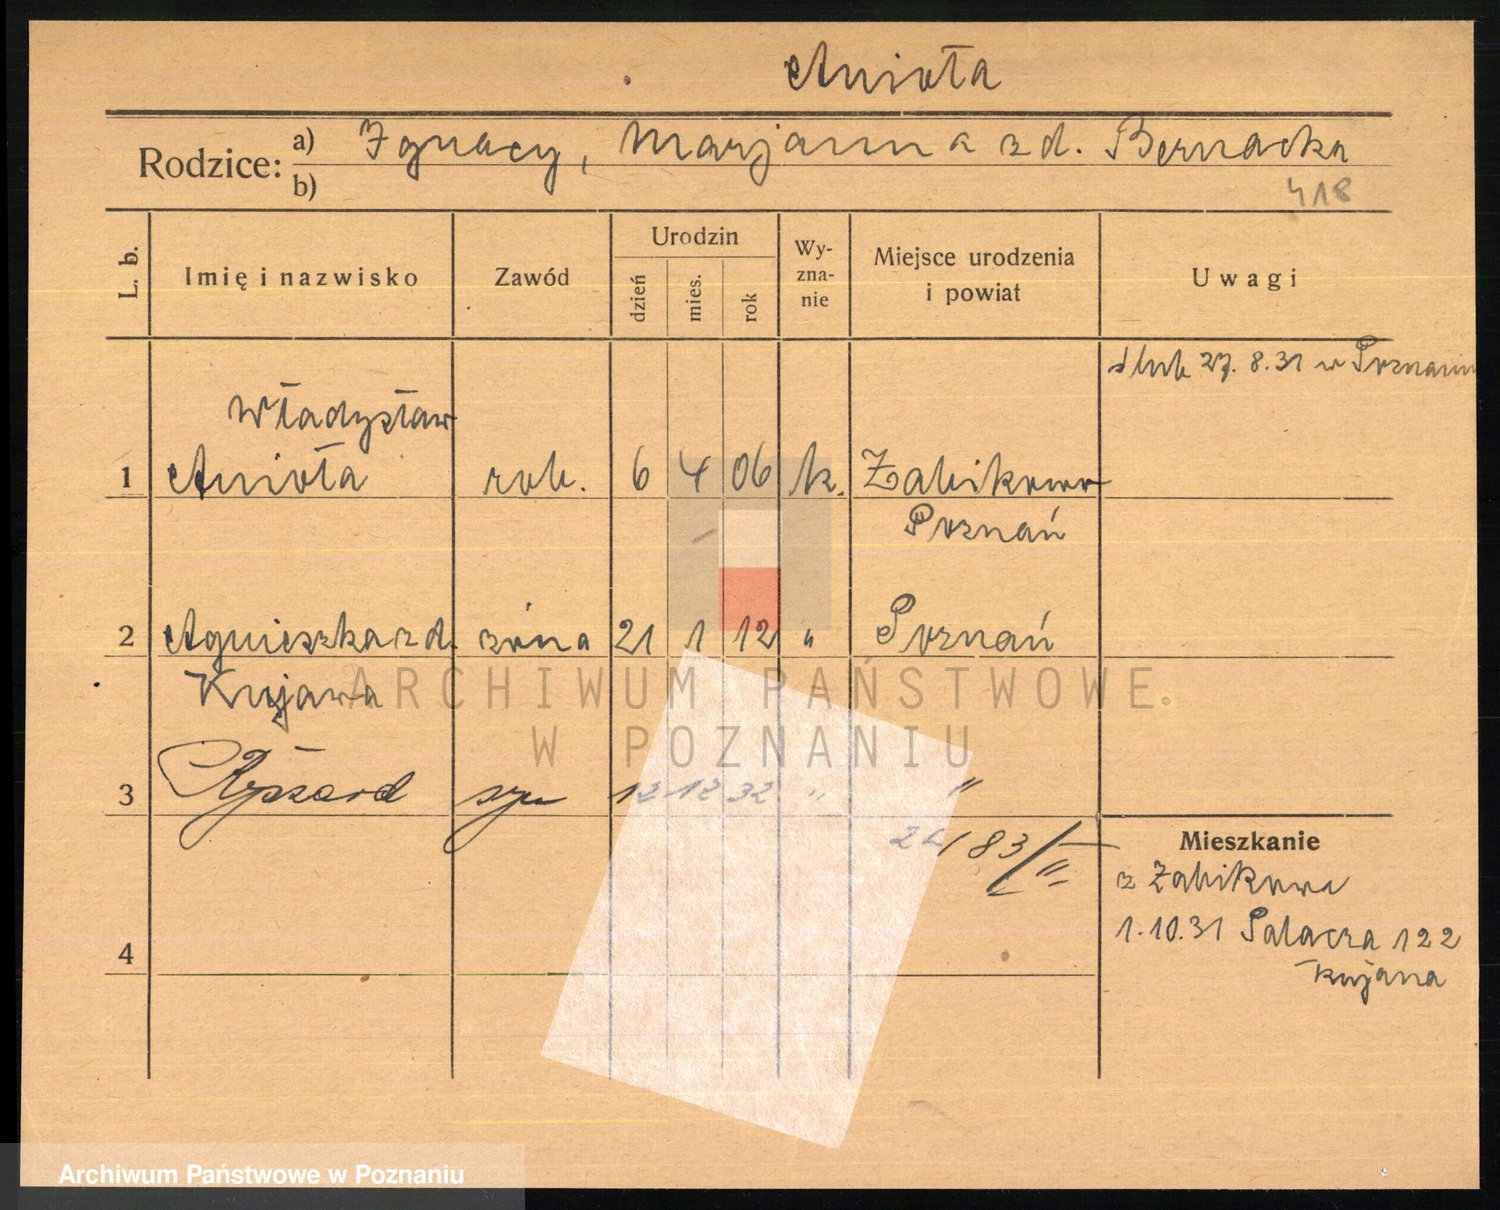 Anioła
Rodzice: a) Ignacy, Marjanna zd. Bernacka
b)
418
L. b. Imię i nazwisko Zawód Urodzin dzień mies. rok Wyznanie Miejsce urodzenia i powiat Uwagi
ślub 27. 8. 31 w Poznaniu
Władysław
1 Anioła rob. 6 4 06 k. Żabikowo
Poznań
2 Agnieszka zd. żona 21 1 12 " Poznań
Kujawa
ARCHIWUM PAŃSTWOWE
W POZNANIU
3 Ryszard syn 12 12 32 " "
83/II
Mieszkanie
z Żabikowa
4
1.10.31 Palacza 122
Kujawa
Archiwum Państwowe w Poznaniu